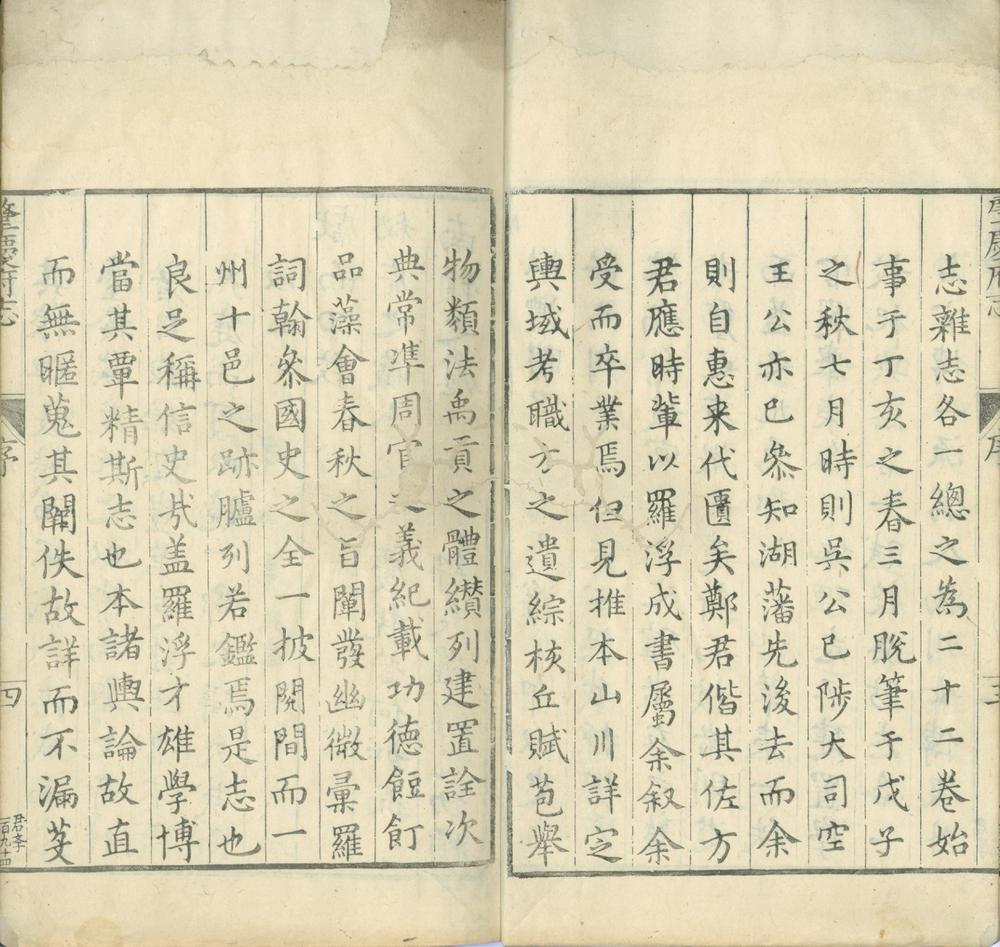 肇慶府志
序
三
志雜志各一總之為二十二卷始
事于丁亥之春三月脫筆于戊子
之秋七月時則吳公已陟大司空
王公亦已叅知湖藩先後去而余
則自惠来代匱矣鄭君偕其佐方
君應時軰以羅浮成書屬余叙余
受而卒業焉但見推本山川詳定
輿域考職方之遺綜核丘賦苞舉
物類法禹貢之體纉列建置詮次
典常準周官之義紀載功德餖飣
品藻會春秋之旨闡發幽微彚羅
詞翰叅國史之全一披閱間而一
州十邑之跡臚列若鑑焉是志也
良足稱信史㢤盖羅浮才雄學博
當其覃精斯志也本諸輿論故直
而無暱蒐其闕佚故詳而不漏芟
肇慶府志
序
四